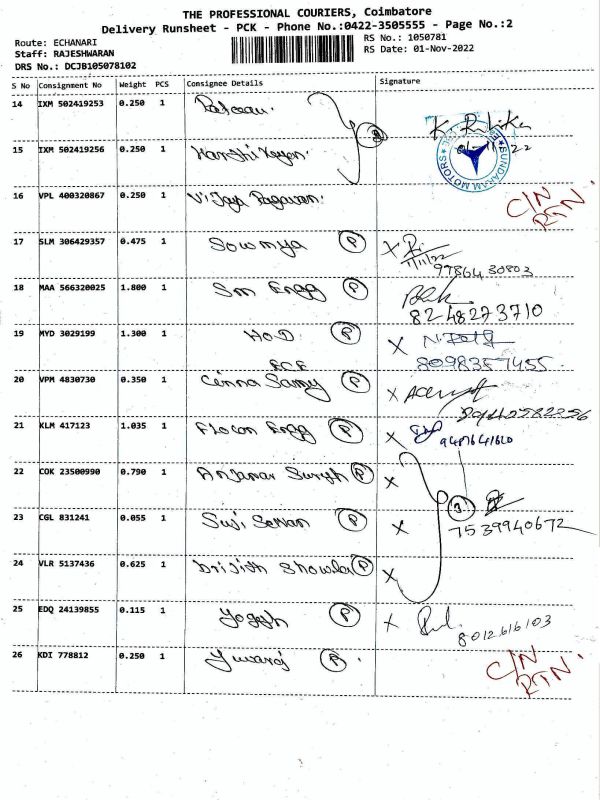 THE PROFESSIONAL COURIERS, Coimbatore
Delivery Runsheet - PCK - Phone No.:0422-3505555 - Page No.:2
Route: ECHANARI
Staff: RAJESHWARAN
DRS No.: DCJB105078102
RS No.: 1050781
RS Date: 01-Nov-2022
S No Consignment No Weight PCS Consignee Details Signature
14 IXM 502419253 0.250 1
15 IXM 502419256 0.250 1
SUNDARAM MOTORS
16 VPL 400320867 0.250 1 C/N
RTN.
17 SLM 306429357 0.475 1 Sowmya P X
1/11/22
9786430803
18 MAA 566320025 1.800 1 Sm Engg P
8248273710
19 MYD 3029199 1.300 1 HOD P X
ECE 8098357455
20 VPM 4830730 0.350 1 Cinna Samy P X
21 KLM 417123 1.035 1 Engg P X
22 COK 23500990 0.790 1 P X
23 CGL 831241 0.055 1 P X 3
7539940672
24 VLR 5137436 0.625 1 P X
25 EDQ 24139855 0.115 1 Yogesh P X
8012616103
26 KDI 778812 0.250 1 Yuvaraj P C/N
RTN.